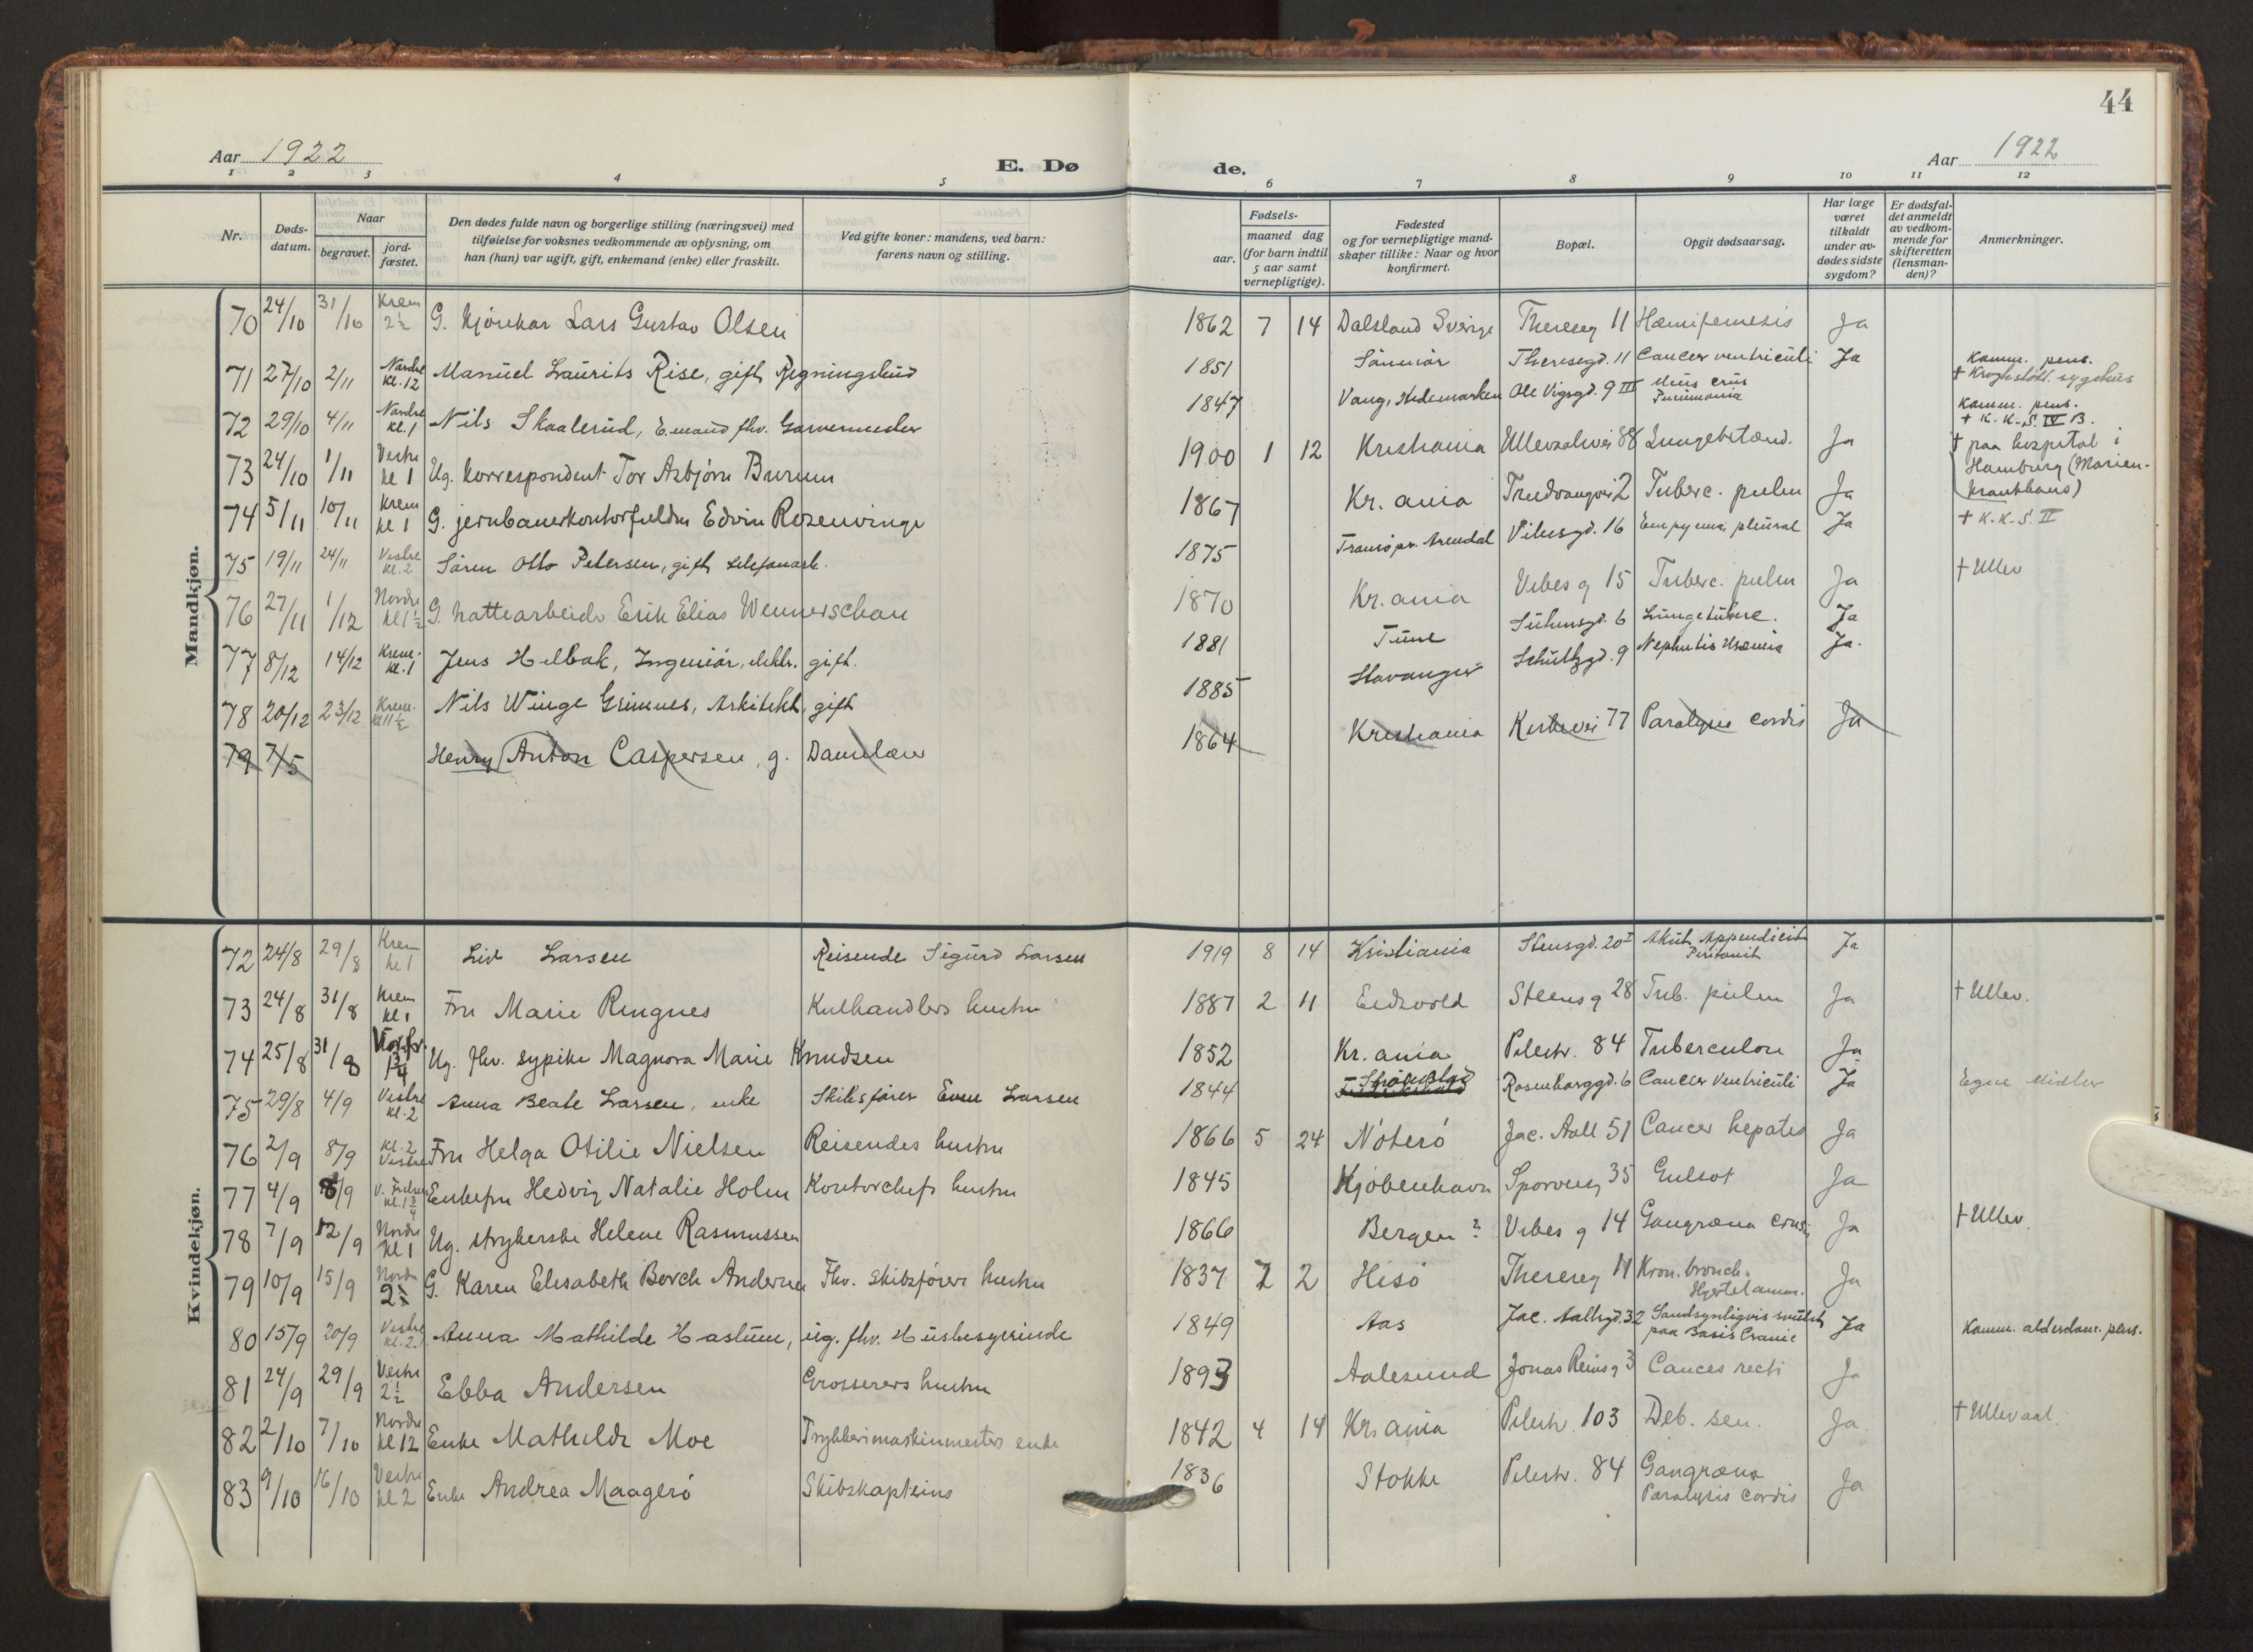 44
Aar 1922
E. Dø de.
Aar 1922
1 2 3 4 5 6 7 8 9 10 11 12
Nr.
Døds-datum.
Naar
begravet.
jord-fæstet.
Den dødes fulde navn og borgerlige stilling (næringsvei) med
tilføielse for voksnes vedkommende av oplysning, om
han (hun) var ugift, gift, enkemand (enke) eller fraskilt.
Ved gifte koner: mandens, ved barn:
farens navn og stilling.
Fødsels-
aar.
maaned dag
(for barn indtil
5 aar samt
vernepligtige).
Fødested
og for vernepligtige mand-
skaper tillike: Naar og hvor
konfirmert.
Bopæl.
Opgit dødsaarsag.
Har læge
været
tilkaldt
under av-
dødes sidste
sygdom?
Er dødsfal-
det anmeldt
av vedkom-
mende for
skifteretten
(lensman-
den)?
Anmerkninger.
Mandkjøn.
70 24/10 31/10 Krem 2½ G. Kjørekar Lars Gustav Olsen 1862 7 14 Dalsland Sverige Thereseg 11 Hæmipemesis Ja
71 27/10 2/11 Nordre kl. 12 Manuel Laurits Rise, gift Rygningsbud 1851 Sänmör Theresegd. 11 Cancer ventriculi Ja Komm. pens. † Kroghstøtt. sygehus
72 29/10 4/11 Nordre kl. 1 Nils Skaalerud, E.mand fhv. Garvermester 1847 Vang, Hedemarken Ole Vigsgd. 9 III Pneumonia Komm. pens. † K.K.S. IV B.
73 24/10 1/11 Vestre kl 1 Ug. Korrespondent Tor Asbjørn Burum 1900 1 12 Kristiania Ullevaalsvei 88 Lungebetænd. Ja † paa hospital i Hamburg (Marien-krankhaus)
74 5/11 10/11 Krem kl 1 G. jernbanekontorfuldm Edvin Rosenvinge 1867 Kr.ania Trudvangvei 2 Tuberc. pulm Ja † K.K.S. II
75 19/11 24/11 Vestre kl. 2 Sören Otto Petersen, gift, telefonarb. 1875 Tromö pr. Arendal Vibesgd. 16 Empyema pleural Ja
76 27/11 1/12 Nordre kl 1½ G. Hattearbeider Erik Elias Wennerschau 1870 Kr.ania Vibes g 15 Tuberc. pulm Ja † Ullev
77 8/12 14/12 Krem. kl. 1 Jens Helbak, Ingeniör, elektr. gift. 1881 Tune Suhmsgd. 6 Lungetuberc. Ja
78 20/12 23/12 Krem. kl 11½ Nils Winge Grimnes, Arkitekt, gift 1885 Stavanger Schultzgd. 9 Nephritis Uræmia Ja.
79 7/5 Henry Anton Caspersen, g. 1864 Kristiania Kirkevei 77 Paralysis cordis Ja
Kvindekjøn.
72 24/8 29/8 Krem kl 1 Liv Larsen Reisende Sigurd Larsen 1919 8 14 Kristiania Stensgd. 20 I Akut Appendicit Peritonit Ja
73 24/8 31/8 Krem kl 1 Fru Marie Ringnes Kulhandlers hustru 1887 2 11 Eidsvold Steens g 28 Tub. pulm Ja † Ullev.
74 25/8 31/8 Vor. fr. 1¾ Ug. fhv. sypike Magnora Marie Knudsen 1852 Kr.ania Pilestr. 84 Tuberculose Ja
75 29/8 4/9 Vestre kl. 2 Anna Beate Larsen, enke Skibsfører Even Larsen 1844 Strömstad Rosenborggd. 6 Cancer Ventriculi Ja Egne Midler
76 2/9 8/9 kl. 2 Vestre Fru Helga Otilie Nielsen Reisendes hustru 1866 5 24 Nøterø Jac. Aall 51 Cancer hepatis Ja
77 4/9 8/9 V. Frelsers kl. 1¾ Enkefru Hedvig Natalie Holm Kontorchefs hustru 1845 Kjøbenhavn Sporveisg 35 Gulsot Ja
78 7/9 12/9 Nordre kl 1 Ug. strykerske Helene Rasmussen 1866 Bergen? Vibes g 14 Gangræna cruris Ja † Ullev.
79 10/9 15/9 Nordre 2½ G. Karen Elisabeth Borch Andersen Fhv. Skibsførers hustru 1837 7 2 Hisø Thereseg 11 Kron. bronch. Hjertelamm. Ja
80 15/9 20/9 Vestre kl. 2. Anna Mathilde Haslum, ug. fhv. Husbestyrerinde 1849 Aas Jac. Aallsgd. 32 Sandsynligvis svulst paa Basis Cranie Ja Komm. alderdoms. pens.
81 24/9 29/9 Vestre 2½ Ebba Andersen Grosserers hustru 1893 Aalesund Jonas Reins g 3 Cancer recti Ja
82 2/10 7/10 Nordre kl 12 Enke Mathilde Moe Trykkerimaskinmesters enke 1842 4 14 Kr.ania Pilestr. 103 Deb. sen. Ja † Ullevaal.
83 9/10 16/10 Vestre kl 2 Enke Andrea Maagerø Skibskapteins 1836 Stokke Pilestr. 84 Gangræna Paralysis cordis Ja